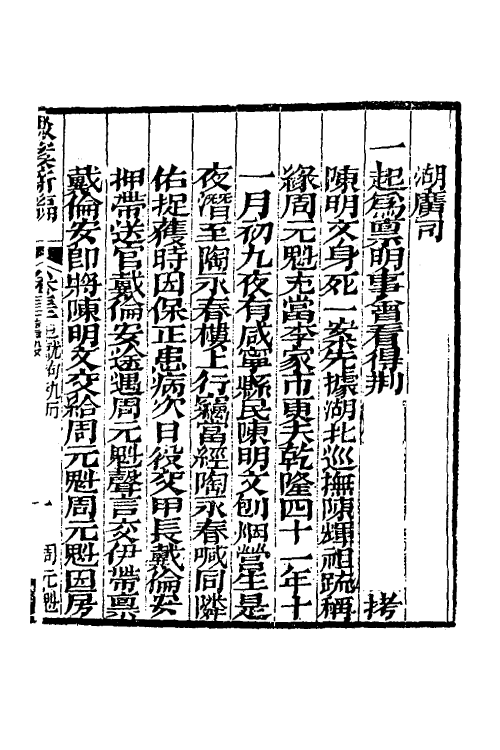 湖廣司
一起爲稟明事會看得荆　拷
陳明文身死一案先據湖北巡撫陳輝祖疏稱
緣周元魁充當李家市東夫乾隆四十一年十
一月初九夜有咸寧縣民陳明文刨烟營生是
夜潛至陶永春樓上行竊當經陶永春喊同隣
佑捉獲時因保正患病次日後交甲長戴倫安
押帶送官戴倫安途遇周元魁聲言交伊帶稟
戴倫安卽將陳明文交給周元魁周元魁因房
駁案新編　卷三　一　周元魁